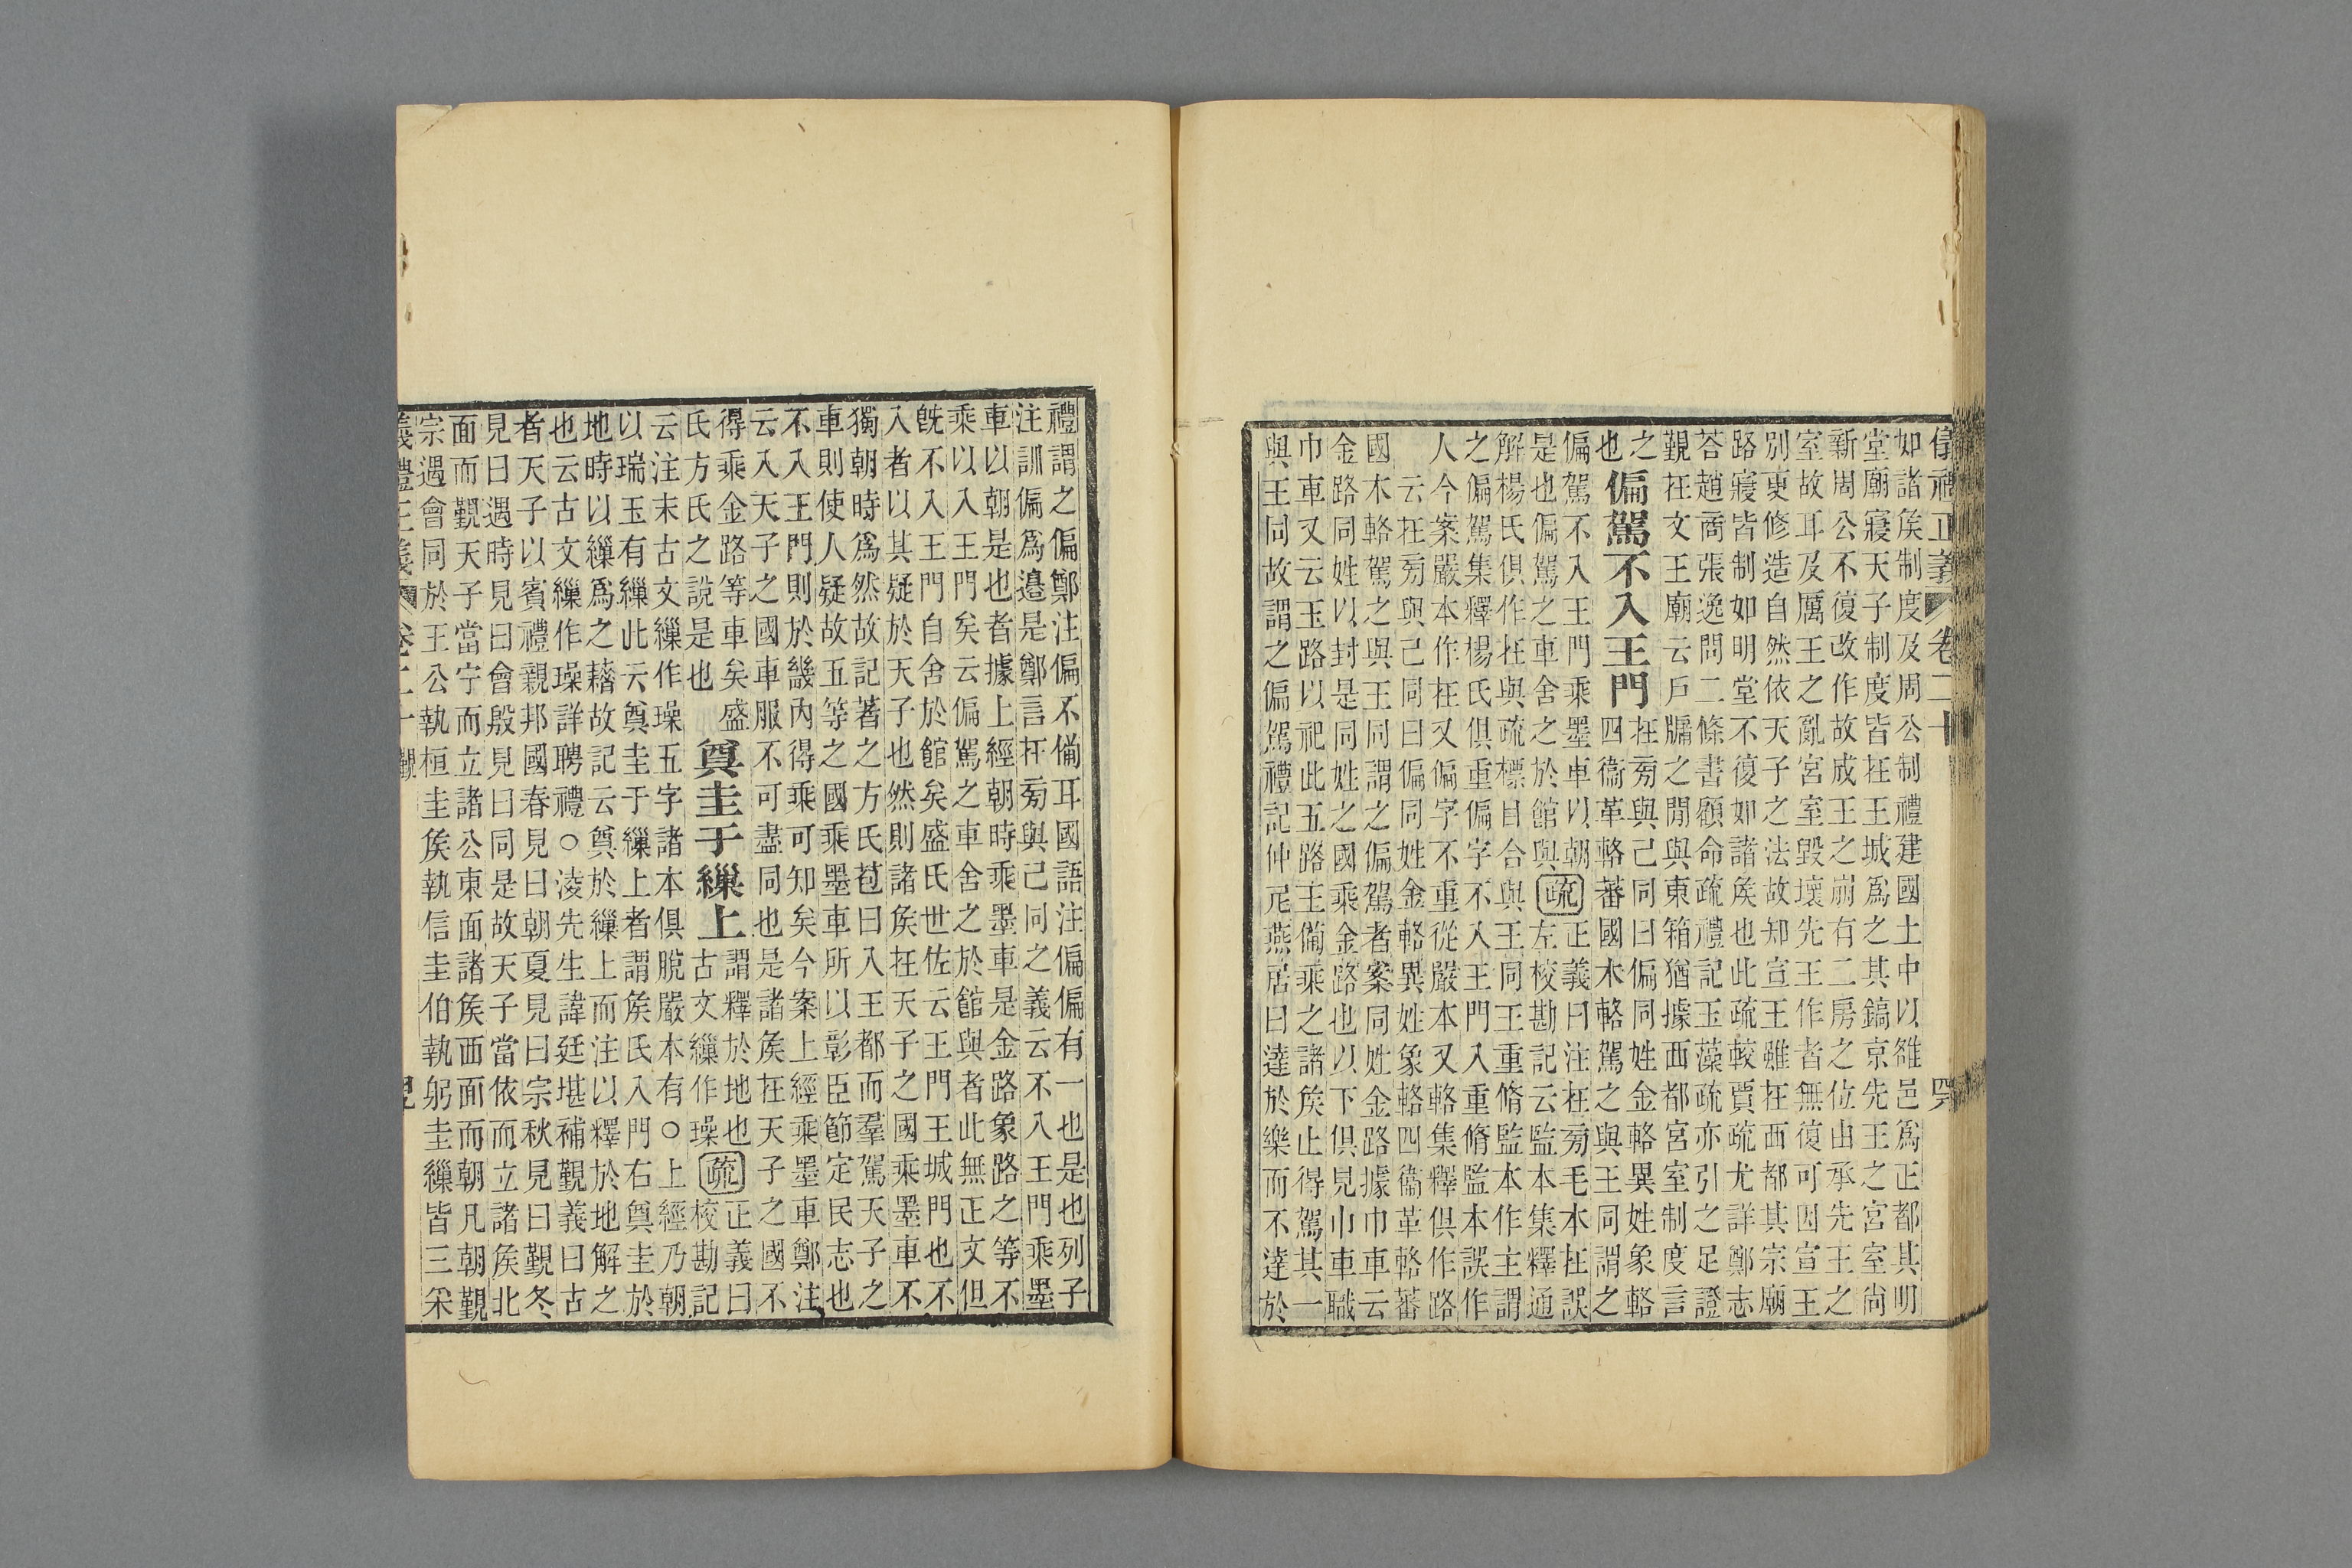 正義 卷二十
如諸矦制度及周公制禮建國土中以雒邑爲正都其明
堂廟寢天子制度皆在王城爲之其鎬京先王之宮室尙
新周公不復改作故成王之崩有二房之位由承先王之
室故耳及厲王之亂宮室毀壞先王作者無復可因宣王
別更修造自然依天子之法故知宣王雖在西都其宗廟
路寢皆制如明堂不復如諸矦也此疏較賈疏尤詳鄭志
荅趙商張逸問二條書顧命疏禮記玉藻疏亦引之足證
覲在文王廟云戶牖之閒與東箱猶據西都宮室制度言
之
也
偏駕不入王門
在旁與己同曰偏同姓金輅異姓象輅
四衞革輅蕃國木輅駕之與王同謂之
偏駕不入王門乘墨車以朝
是也偏駕之車舍之於館與
疏
正義曰注在旁毛本在誤
左校勘記云監本集釋通
解楊氏俱作在與疏標目合與王同王重脩監本作主謂
之偏駕集釋楊氏俱重偏字不入王門入重脩監本誤作
人今案嚴本作在又偏字不重從嚴本又輅集釋俱作路
云在旁與己同曰偏同姓金輅異姓象輅四衞革輅蕃
國木輅駕之與王同謂之偏駕者案同姓金路據巾車云
金路同姓以封是同姓之國乘金路也以下俱見巾車職
巾車又云玉路以祀此五路王備乘之諸矦止得駕其一
與王同故謂之偏駕禮記仲尼燕居曰達於樂而不達於
禮謂之偏鄭注偏不備耳國語注偏偏有一也是也列子
注訓偏爲邉是鄭言在旁與己同之義云不入王門乘墨
車以朝是也者據上經朝時乘墨車是金路象路之等不
乘以入王門矣云偏駕之車舍之於館與者此無正文但
旣不入王門自舍於館矣盛氏世佐云王門王城門也不
入者以其疑於天子也然則諸矦在天子之國乘墨車不
獨朝時爲然故記著之方氏苞曰入王都而羣駕天子之
車則使人疑故五等之國乘墨車所以彰臣節定民志也
不入王門則於畿內得乘可知矣今案上經乘墨車鄭注
云入天子之國車服不可盡同也是諸矦在天子之國不
得乘金路等車矣盛
氏方氏之說是也
奠圭于繅上
謂釋於地也
古文繅作璪
疏
正義曰
校勘記
云注末古文繅作璪五字諸本俱脫嚴本有○上經乃朝
以瑞玉有繅此云奠圭于繅上者謂矦氏入門右奠圭於
地時以繅爲之藉故記云奠於繅上而注以釋於地解之
也云古文繅作璪詳聘禮○淩先生諱廷堪補覲義曰古
者天子以賓禮親邦國春見曰朝夏見曰宗秋見曰覲冬
見曰遇時見曰會殷見曰同是故天子當依而立諸矦北
面而覲天子當宁而立諸公東面諸矦西面而朝凡朝覲
宗遇會同於王公執桓圭矦執信圭伯執躬圭繅皆三采